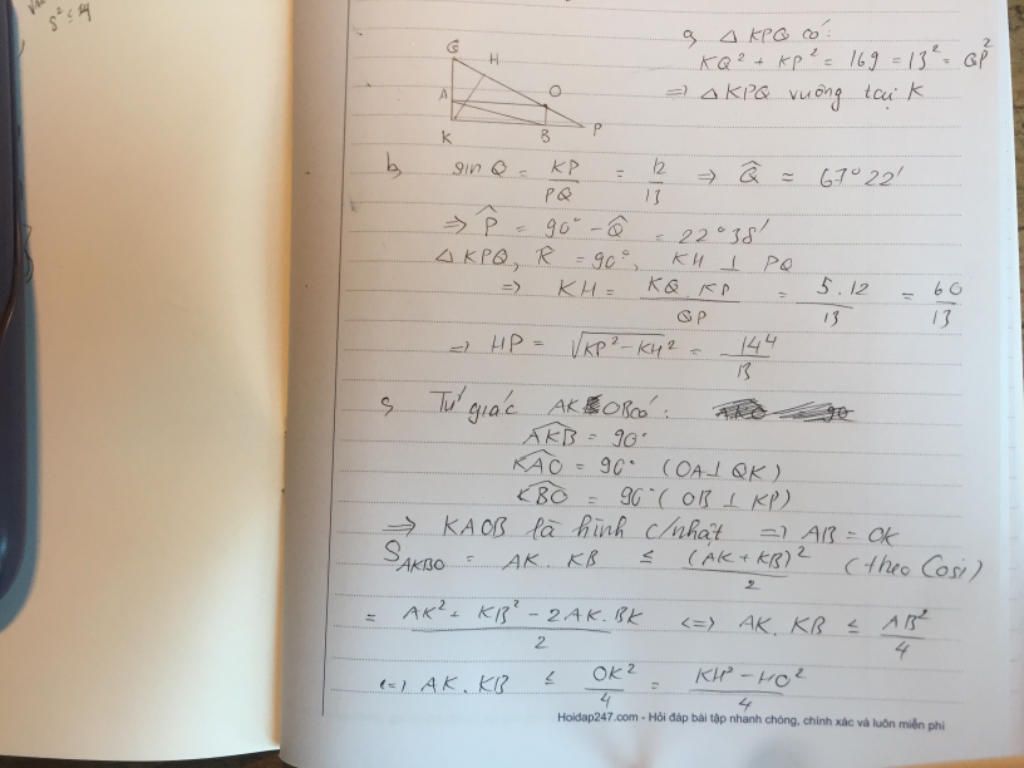 S² ≤ 4
a, Δ KPQ có:
KQ² + KP² = 169 = 13² = QP²
=> Δ KPQ vuông tại K
Q
H
A
O
K
B
P
b, sin Q = KP/PQ = 12/13 => Q̂ ≈ 67°22'
=> P̂ = 90° - Q̂ = 22°38'
Δ KPQ, K̂ = 90°, KH ⊥ PQ
=> KH = KQ.KP/QP = 5.12/13 = 60/13
=> HP = √(KP² - KH²) = 144/13
c, Tứ giác AKOB có:
AKB = 90°
KAO = 90° (OA ⊥ QK)
KBO = 90° (OB ⊥ KP)
=> KAOB là hình c/nhật => AB = OK
S_AKBO = AK. KB ≤ (AK + KB)²/2 (theo Cosi)
= AK² + KB² - 2AK.BK/2 <=> AK. KB ≤ AB²/4
<=> AK. KB ≤ OK²/4 = KH² - HO²/4
Hoidap247.com - Hỏi đáp bài tập nhanh chóng, chính xác và luôn miễn phí